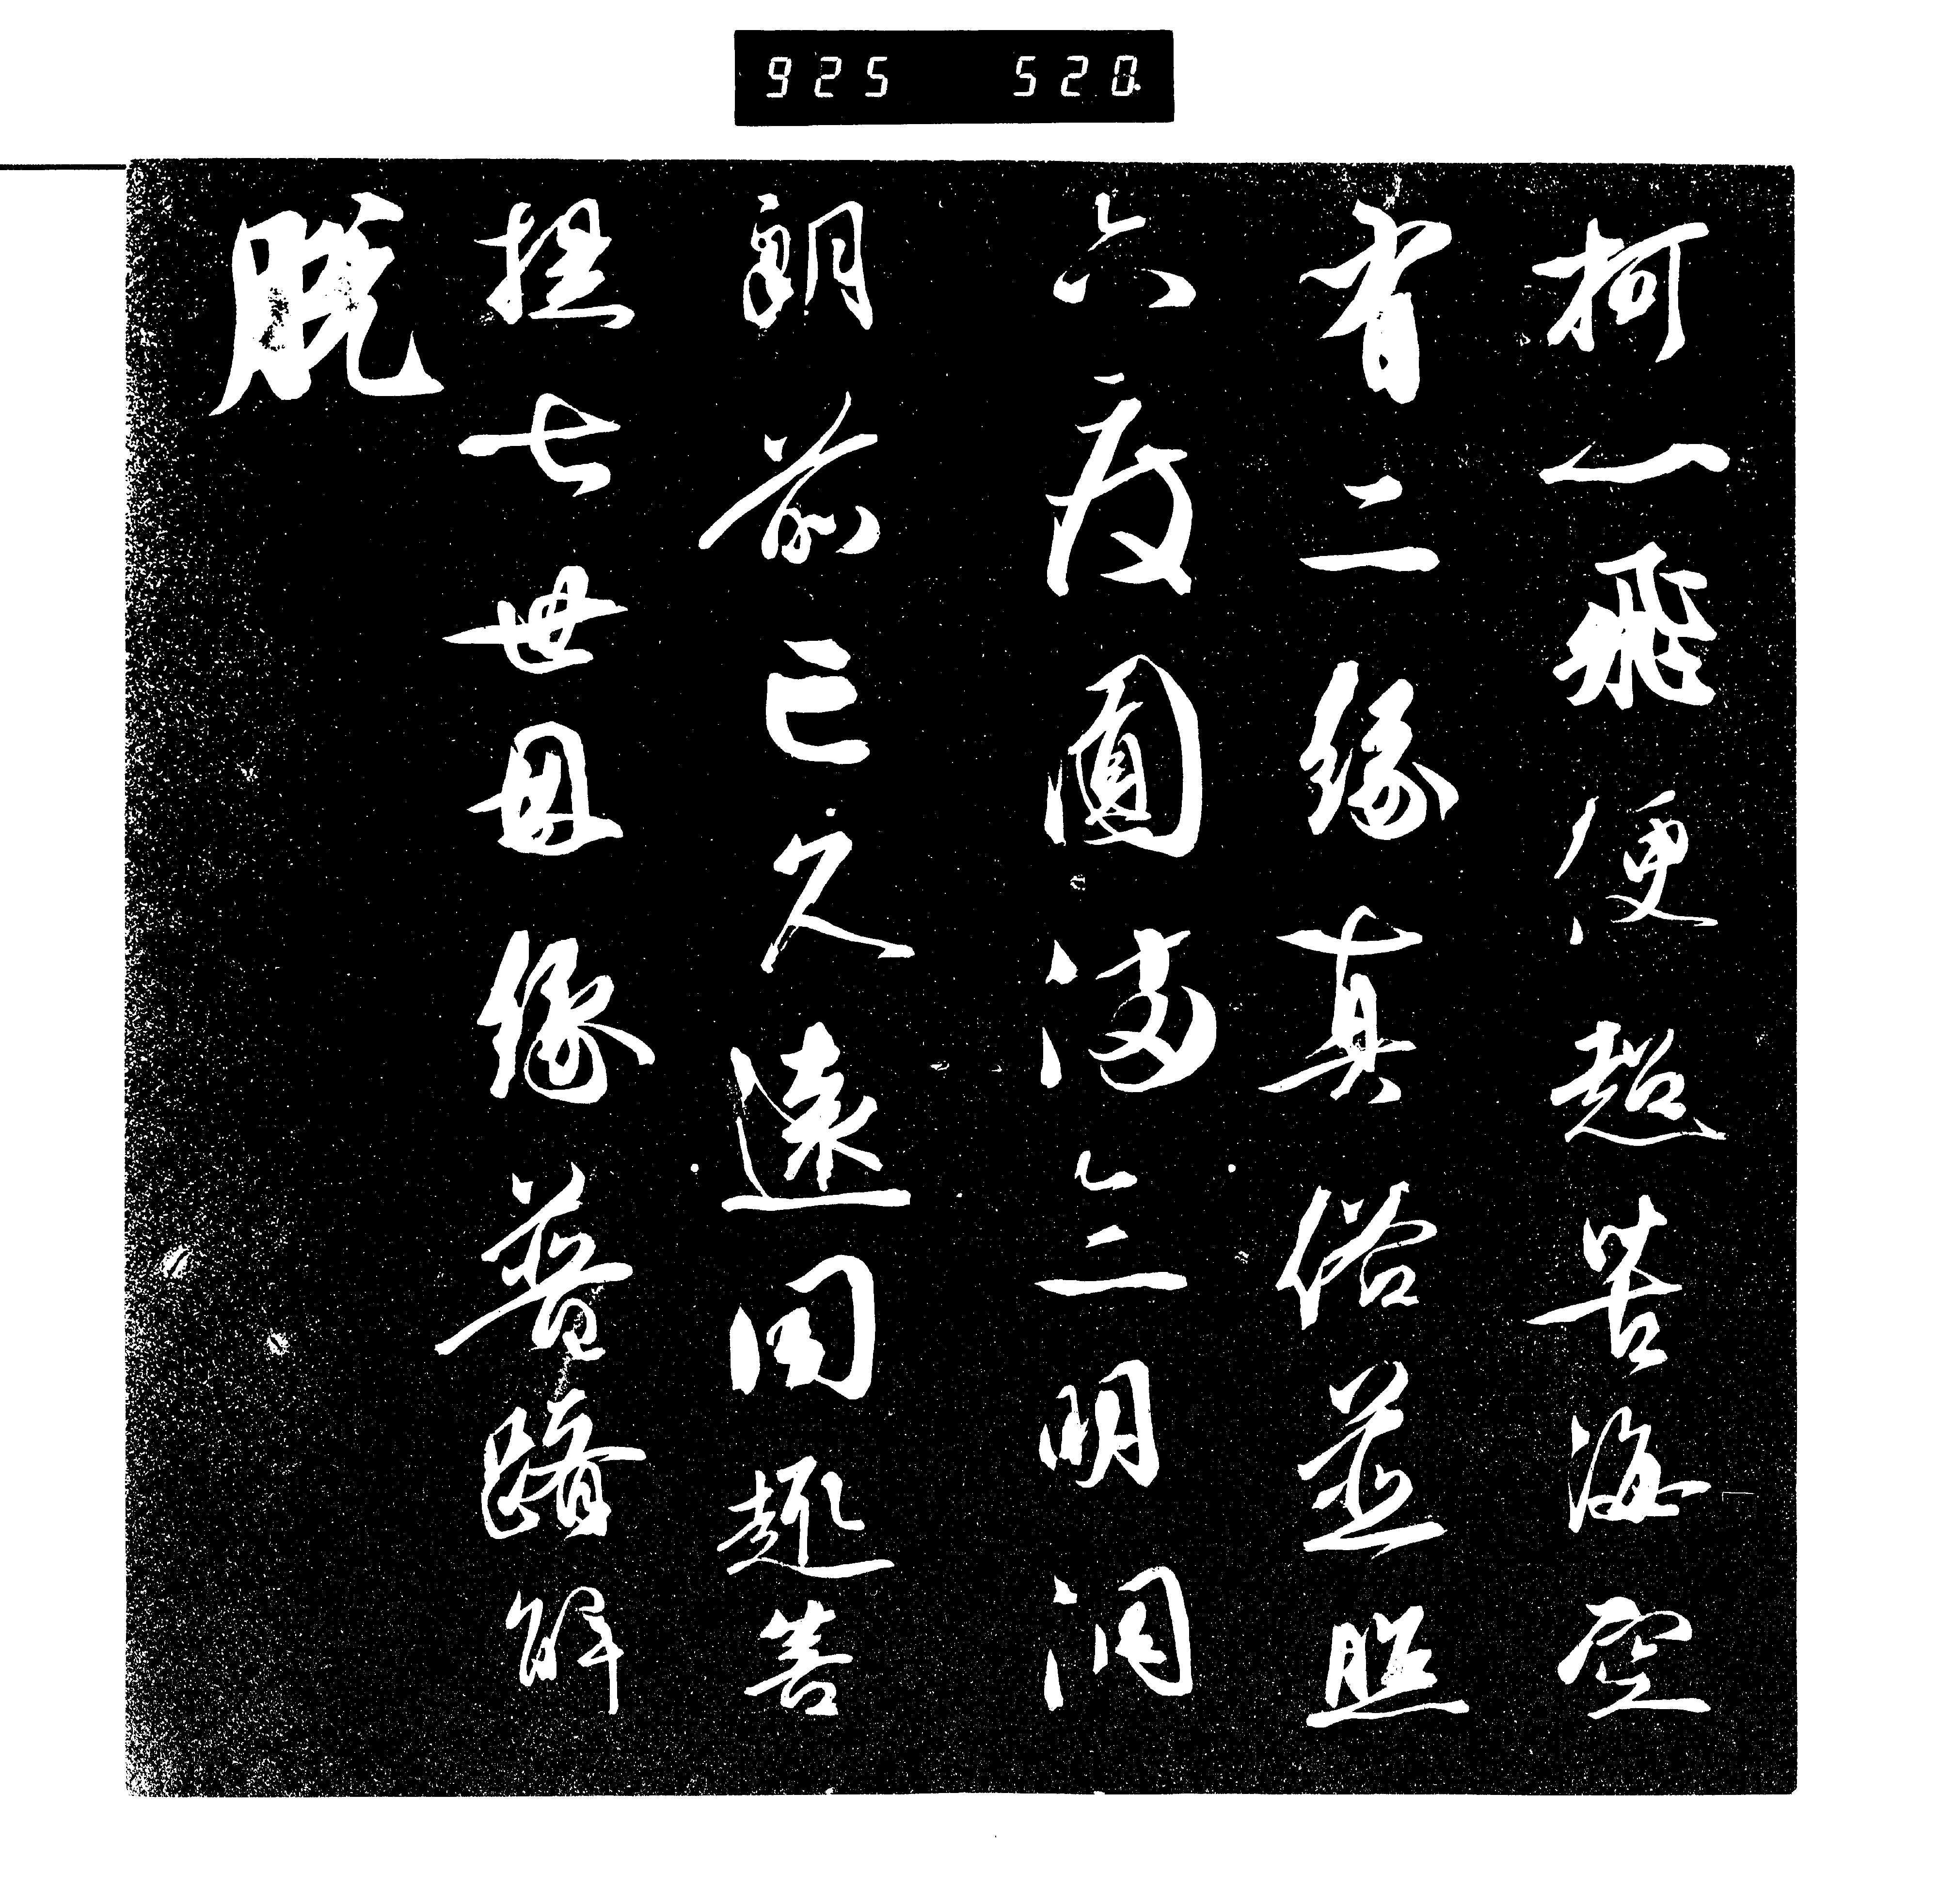 925 520
柯一飛便超苦海空
有二緣真俗並照
六度圓滿三明洞
朗前已久遠同趣善
提七世四緣普躋解
脫